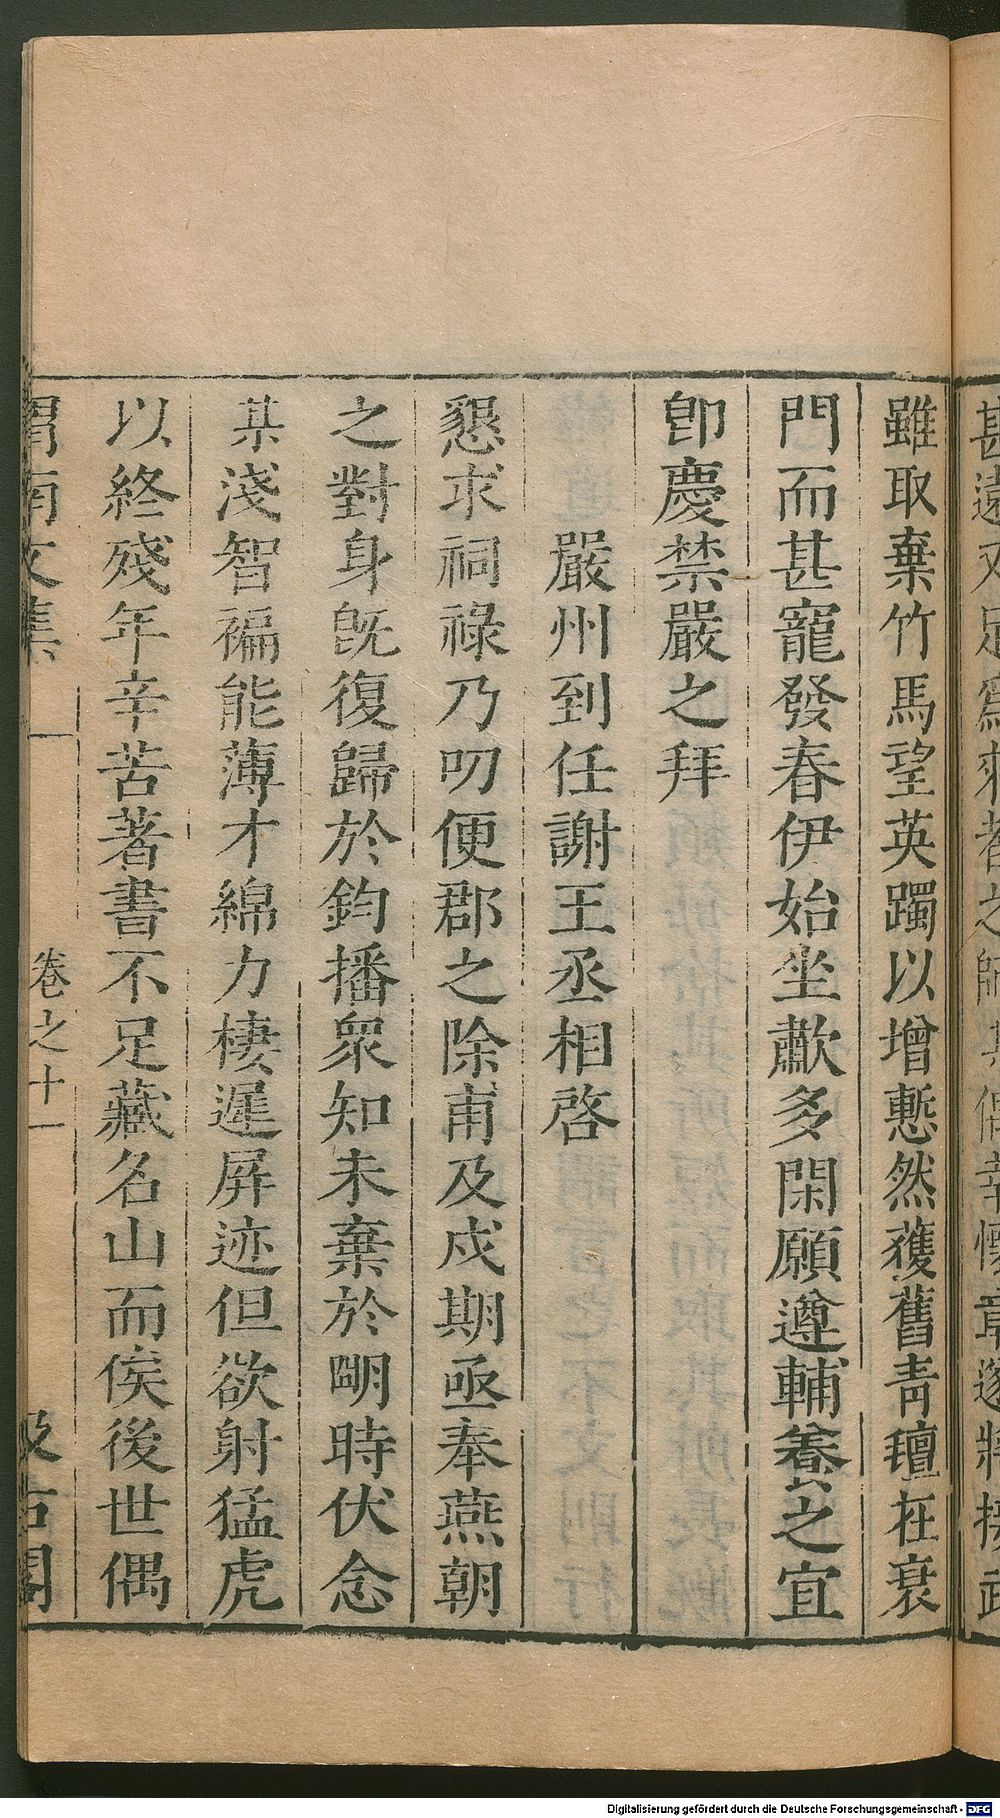 雖取棄竹馬望英躅以增慙然獲舊青氊在衰
門而甚寵發春伊始坐歗多閑願遵輔養之宜
卽慶禁嚴之拜
嚴州到任謝王丞相啓
懇求祠祿乃叨便郡之除甫及戍期亟奉燕朝
之對身旣復歸於鈞播衆知未棄於明時伏念
某淺智褊能薄才綿力棲遲屛迹但欲射猛虎
以終殘年辛苦著書不足藏名山而俟後世偶
渭南文集
卷之十一
汲古閣
Digitalisierung gefördert durch die Deutsche Forschungsgemeinschaft - DFG